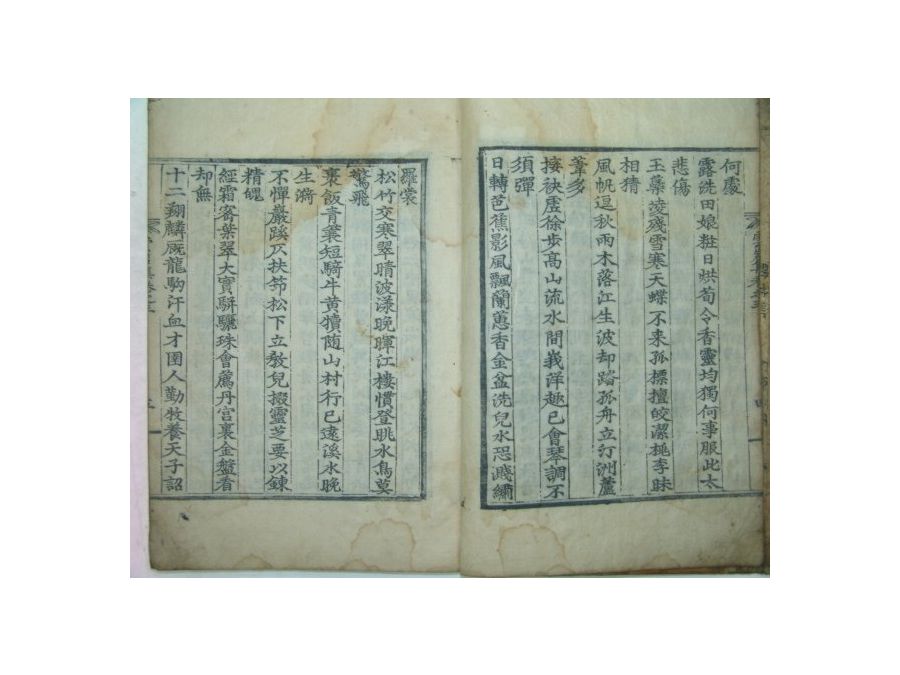 何處
露洗田娘粧日烘荀令香靈均獨何事服此太
悲傷
玉蘂凌殘雪寒天蝶不来孤標擅皎潔桃李昧
相猜
風帆逗秋雨木落江生波却踏孤舟立汀洲蘆
葦多
接袂虛徐步高山流水間峩洋趣已會琴調不
須彈
日轉芭蕉影風飄蘭蕙香金盆洗兒水恐濺繡
羅裳
松竹交寒翠晴波漾晩暉江樓慣登眺水鳥莫
驚飛
裹飯青蒻短騎牛黄犢随山村行已遠溪水晩
生漪
不憚巖蹊仄扶筇松下立敎兒掇靈芝要以鍊
精魄
經霜客葉翠大實騈驪珠會薦丹宫裏金盤看
却無
十二翔麟厩龍駒汗血才圉人勤牧養天子詔